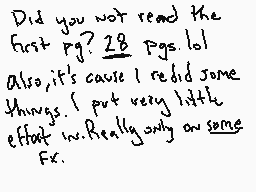 Did you not read the
first pg? 28 pgs. lol
Also, it's cause I redid some
things. I put very little
effort in. Really only on some
FX.